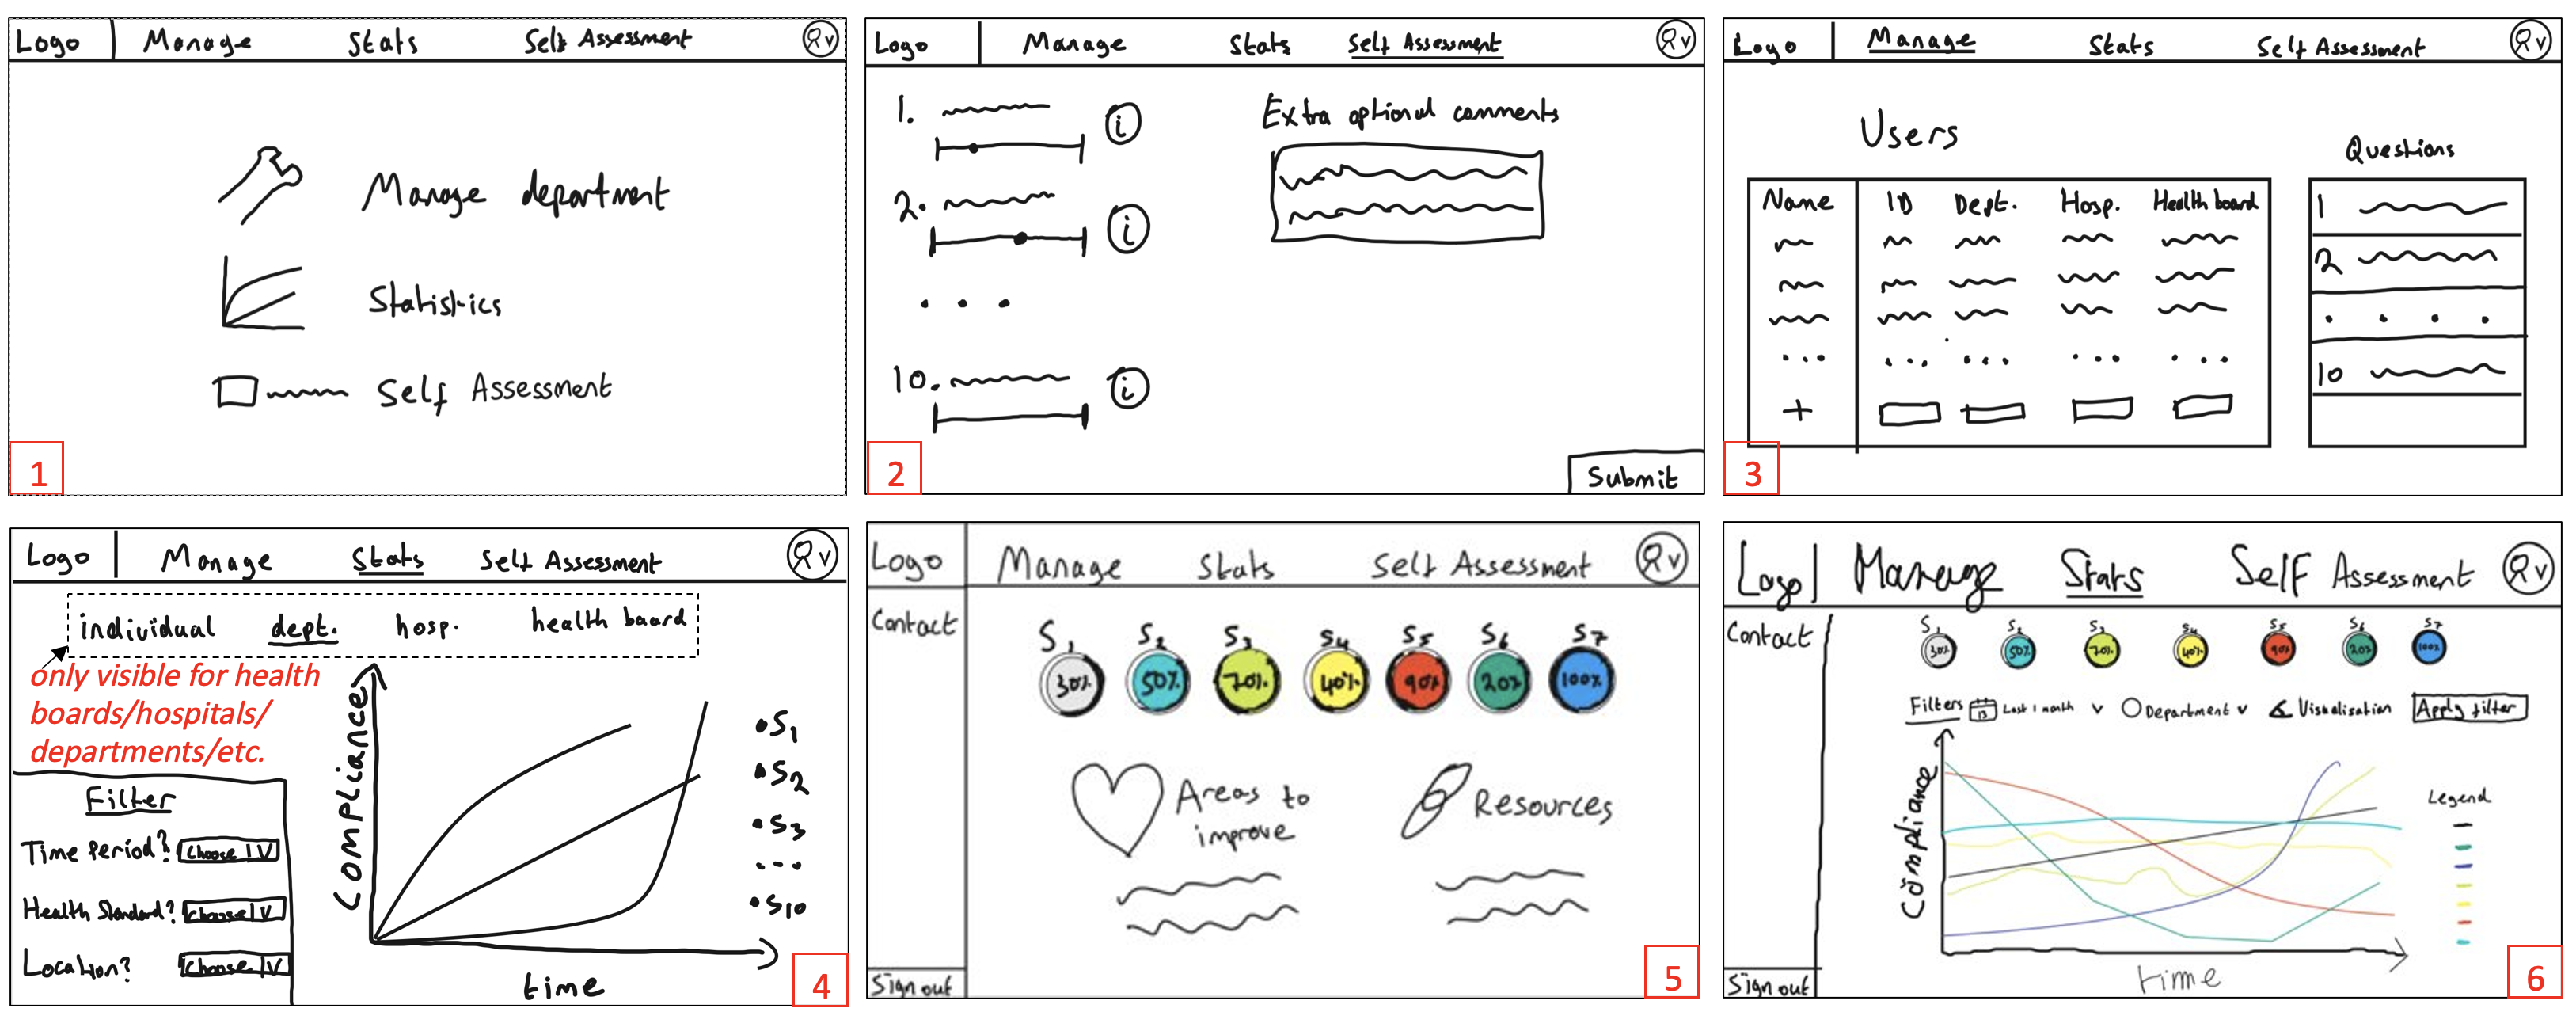 Logo Manage Stats Self Assessment
Manage department
Statistics
Self Assessment
1
Logo Manage Stats Self Assessment
1. i
Extra optional comments
2. i
. . .
10. i
Submit
2
Logo Manage Stats Self Assessment
Users
Questions
Name ID Dept. Hosp. Health board
1
2
. . . .
10
... ... ... ... ...
+
3
Logo Manage Stats Self Assessment
individual dept. hosp. health board
only visible for health
boards/hospitals/
departments/etc.
Filter
Time Period? Choose V
Health Standard? Choose V
Location? Choose V
Compliance
time
•S1
•S2
•S3
...
•S10
4
Logo Manage Stats Self Assessment
Contact
S1 S2 S3 S4 S5 S6 S7
30% 50% 70% 40% 90% 20% 100%
Areas to
improve
Resources
Sign out
5
Logo Manage Stats Self Assessment
Contact
S1 S2 S3 S4 S5 S6 S7
30% 50% 70% 40% 90% 20% 100%
Filters 13 Last 1 month v Department v Visualisation Apply filter
Compliance
Legend
time
Sign out
6